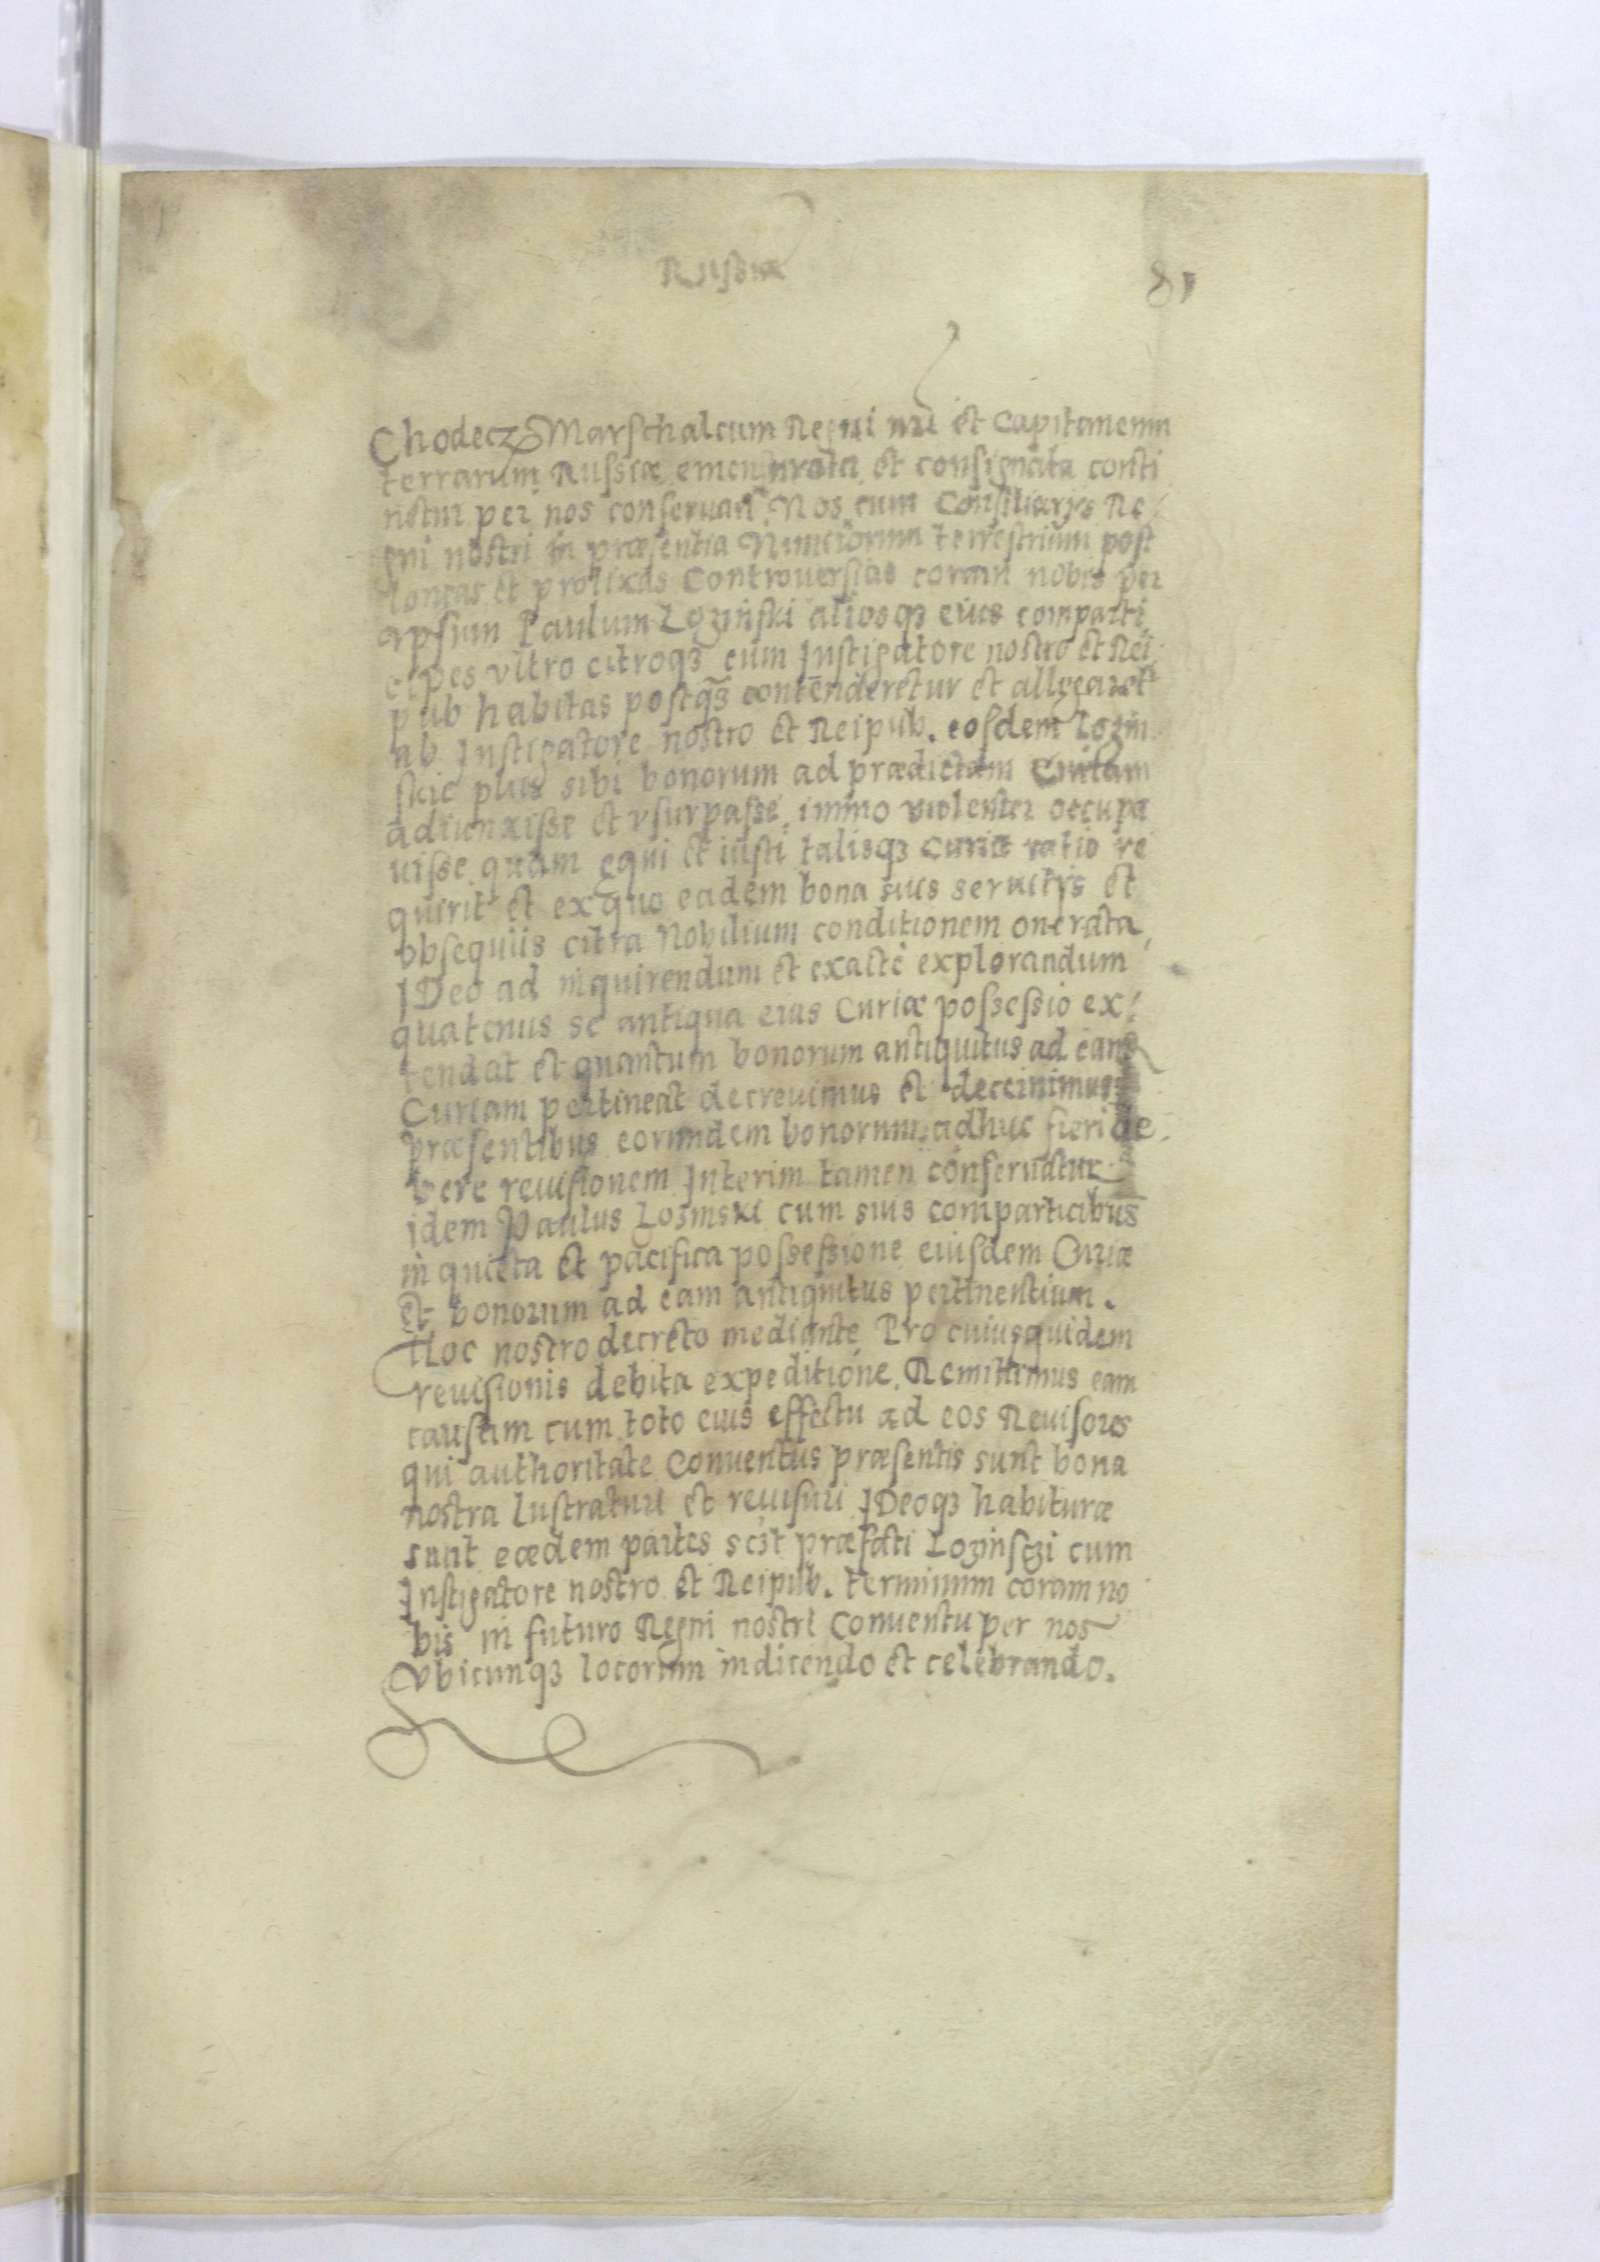 Russiæ
81
Chodecz Marschalcum Regni nri et Capitaneum
terrarum Russiæ emensurata et consignata conti
netur per nos conseruari Nos cum Consiliarys Re
gni nostri in præsentia Nunciorum terrestrium post
longas et prolixas Controuersias coram nobis per
ipsum Paulum Lozinski aliosq3 eius comparti
cipes vltro citroq3 cum Instigatore nostro et Rei
pub habitas postq3 contenderetur et allegaret
ab Instigatore nostro et Reipub. eosdem Lozin
skie plus sibi bonorum ad prædictam Curiam
adiunxisse et vsurpasse, immo violenter occupa
uisse quam equi et iusti talisq3 Curiæ ratio re
quirit et ex quo eadem bona suis seruitys et
obsequiis citra Nobilium conditionem onerata,
IDeo ad inquirendum et exacte explorandum
quatenus se antiqua eius Curiæ possessio ex/
tendat et quantum bonorum antiquitus ad eand
Curiam pertineat decreuimus et decernimus
præsentibus eorundem bonorum adhuc fieri de
bere reuisionem Interim tamen conseruatur
idem Paulus Lozinski cum suis comparticibus
in quieta et pacifica possessione eiusdem Curiæ
et bonorum ad eam antiquitus pertinentium.
Hoc nostro decreto mediante Pro cuiusquidem
reuisionis debita expeditione. Remittimus eam
causam cum toto eius effectu ad eos Reuisores
qui authoritate Conuentus præsentis sunt bona
nostra lustraturi et reuisuri IDeoq3 habituræ
sunt eædem partes scit præfati Lozinsczi cum
Instigatore nostro et Reipub. terminum coram no
bis in futuro Regni nostri Conuentu per nos
Vbicunq3 locorum indicendo et celebrando.